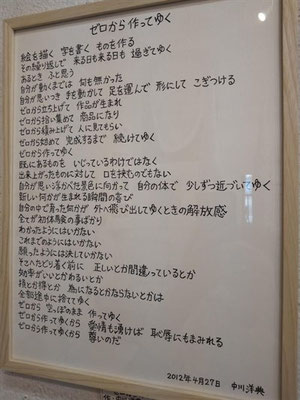 ゼロから作ってゆく
絵を描く 字を書く ものを作る
その繰り返しで 来る日も来る日も 過ぎてゆく
あるとき ふと思う
自分が動くまでは 何も無かった
自分が思いつき 手を動かして 足を運んで 形にして こぎつける
ゼロから立ち上げて 作品が生まれ
ゼロから拾い集めて 商品になり
ゼロから積み上げて 人に見てもらい
ゼロから始めて 完成するまで 続けてゆく
ゼロから作ってゆく
既にあるものを いじっているわけではなく
出来上がったものに対して 口を挟むのでもない
自分が思い浮かべた景色に向かって 自分の体で 少しずつ近づいてゆく
新しい何かが生まれる瞬間の喜び
自分の中で育った何かが 外へ飛び出してゆくときの解放感
全てが初体験の喜ばかり
わかったようにはいかない
これまでのようにはいかない
願ったようには決していかない
そこへたどり着く前に 正しいとか間違っているとか
効率がいいとかわるいとか
損とか得とか 為になるとかならないとかは
全部途中に捨ててゆく
ゼロから 空っぽのまま 作ってゆく
ゼロから作ってゆくから 愛情も湧けば 恥辱にもまみれる
ゼロから作ってゆくから 尊いのだ
2012年4月27日 中川洋典